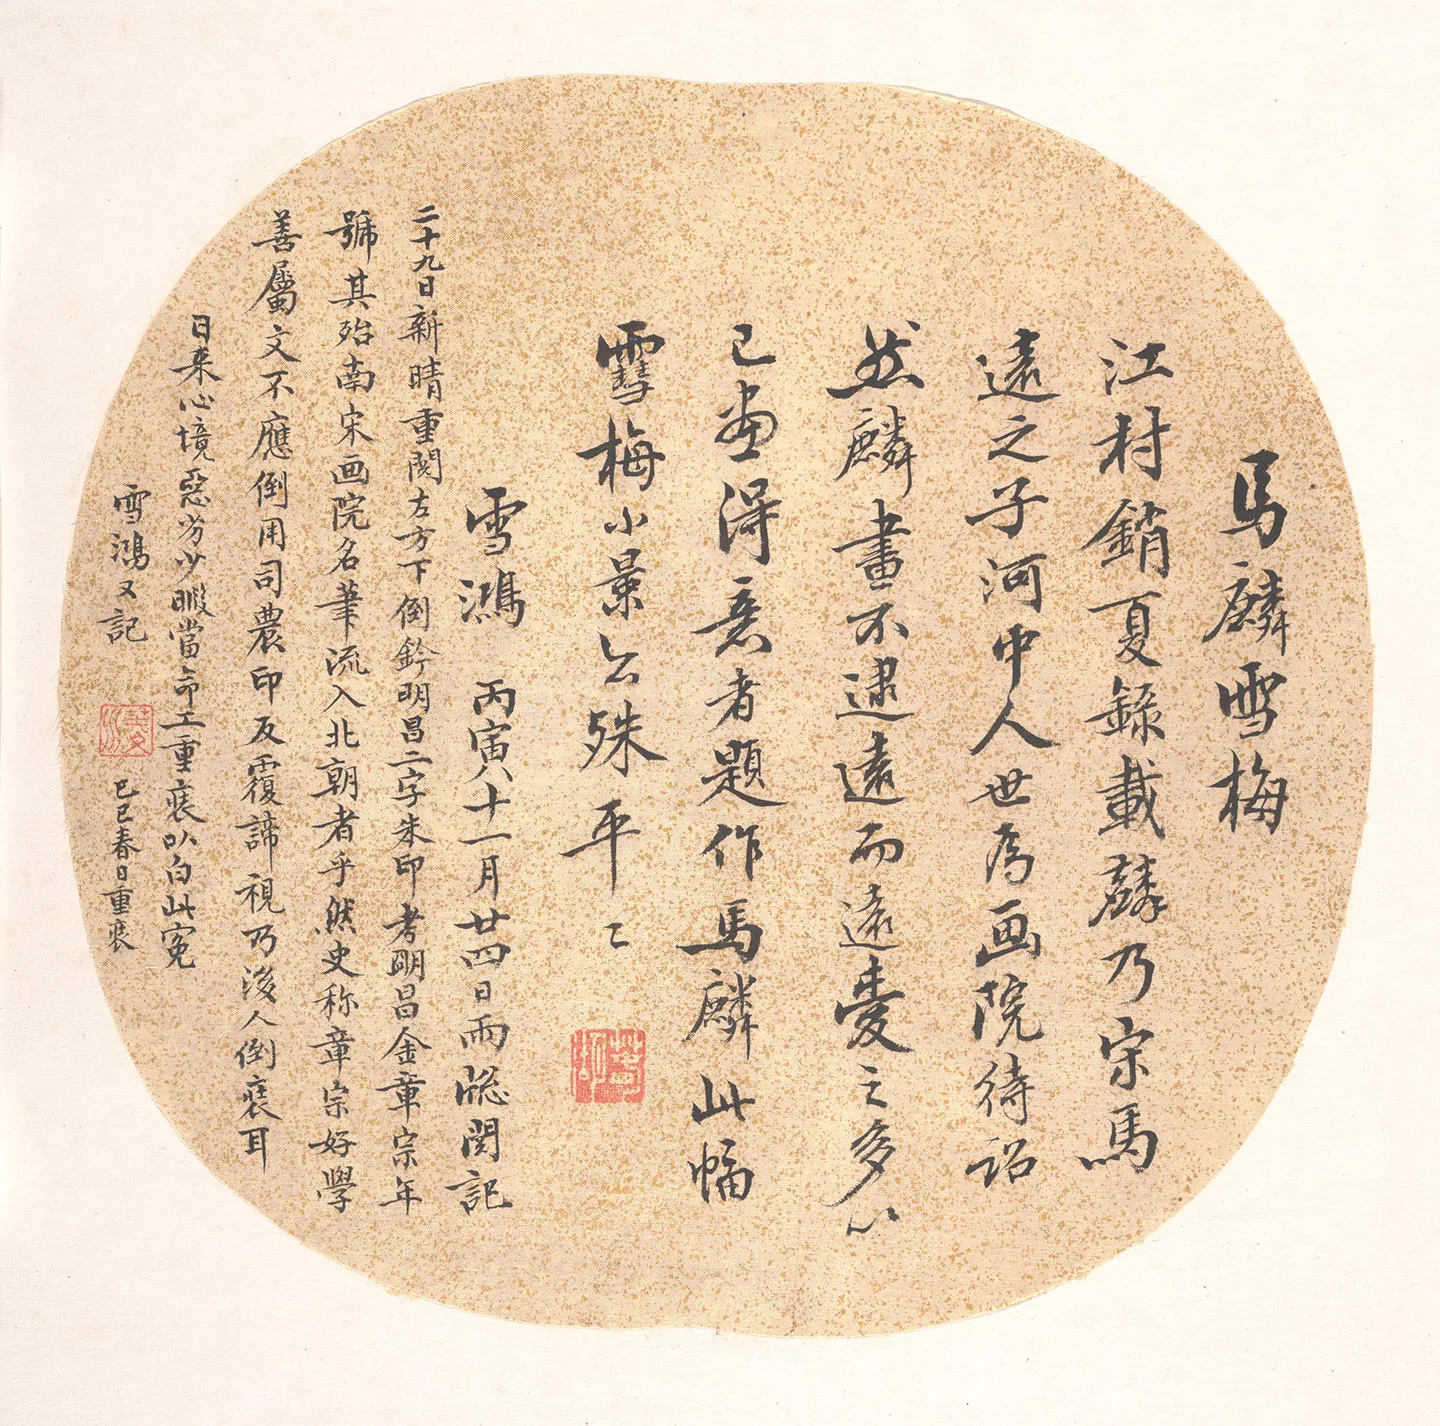 馬麟雪梅
江村銷夏錄載麟乃宋馬
遠之子河中人世為画院待詔
然麟畫不逮遠而遠愛之多以
己畫得意者題作馬麟此幅
雪梅小景公殊平平
雪鴻 丙寅八十一月廿四日雨牕閱記
二十九日新晴重閱左方下倒鈐明昌二字朱印考明昌金章宗年
號其殆南宋画院名筆流入北朝者乎然史称章宗好學
善屬文不應倒用司農印反覆諦視乃後人倒裝耳
日來心境惡劣少暇當命工重裝以白此冤
雪鴻又記 己巳春日重裝